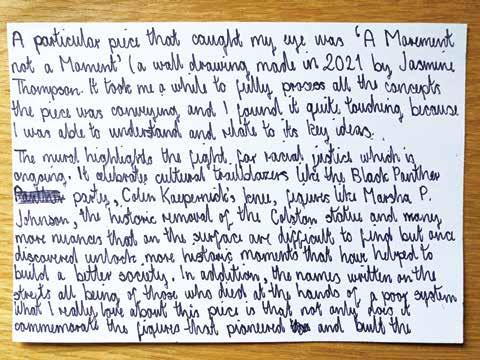 A particular piece that caught my eye was 'A Movement
not a Moment' (a wall drawing made in 2021 by Jasmine
Thompson. It took me a while to fully process all the concepts
the piece was conveying and I found it quite touching because
I was able to understand and relate to its key ideas.
The mural highlights the fight for racial justice which is
ongoing. It celebrates cultural trailblazers like the Black Panther
party, Colin Kaepernick's knee, figures like Marsha P.
Johnson, the historic removal of the Colston statue and many
more nuances that on the surface are difficult to find but once
discovered unlock more historic moments that have helped to
build a better society. In addition, the names written on the
streets all being of those who died at the hands of a poor system
what I really love about this piece is that not only does it
commemorate the figures that pioneered and built the